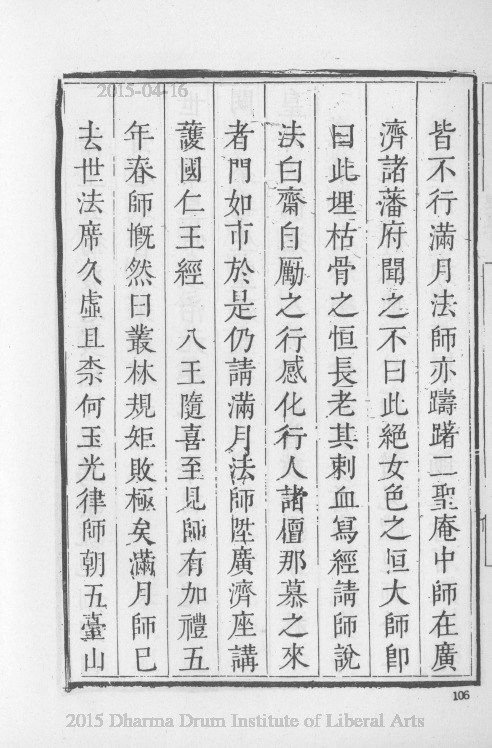 2015-04-16
皆不行滿月法師亦躊躇二聖庵中師在廣
濟諸藩府聞之不曰此絕女色之恒大師卽
曰此埋枯骨之恒長老其剌血寫經請師說
法白齋自勵之行感化行人諸檀那慕之來
者門如市於是仍請滿月法師陞廣濟座講
護國仁王經 八王隨喜至見師有加禮五
年春師慨然曰叢林規矩敗極矣滿月師已
去世法席久虛且柰何玉光律師朝五臺山
106
2015 Dharma Drum Institute of Liberal Arts